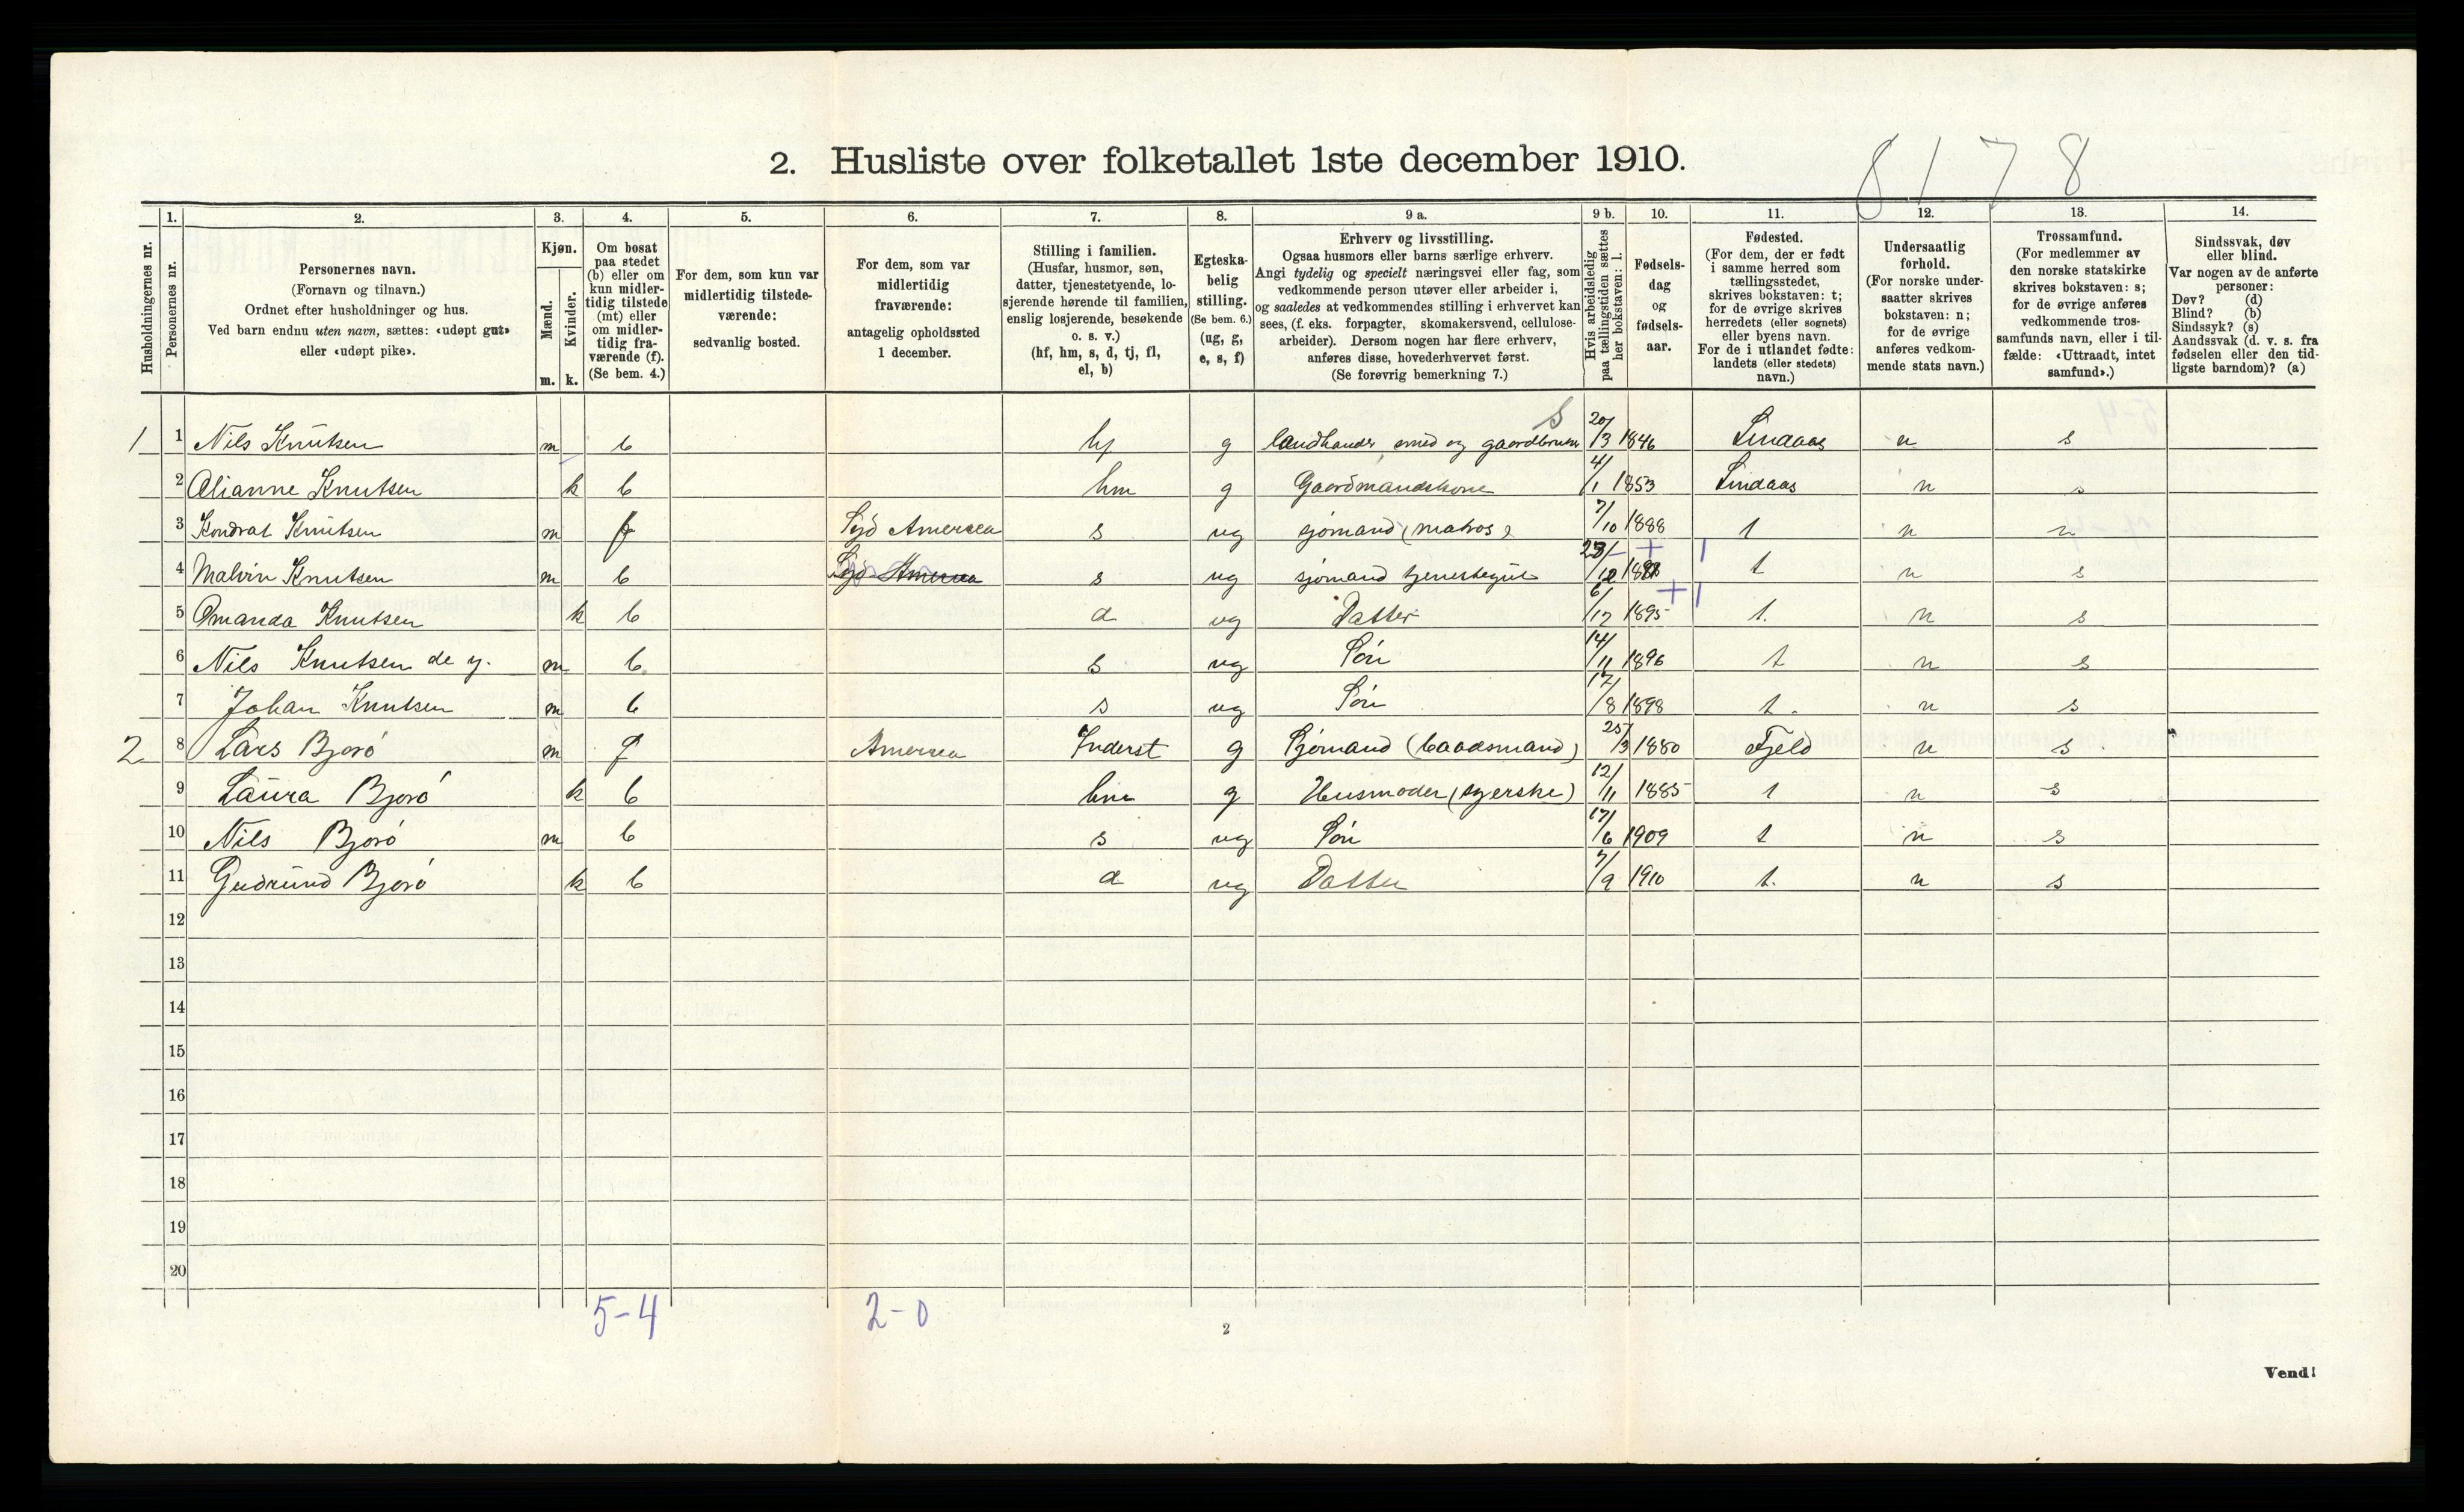 8 1 7 8
2. Husliste over folketallet 1ste december 1910.
Husholdningernes nr.
1. Personernes nr.
2. Personernes navn. (Fornavn og tilnavn.) Ordnet efter husholdninger og hus. Ved barn endnu uten navn, sættes: «udøpt gut» eller «udøpt pike».
3. Kjøn. Mænd. m. Kvinder. k.
4. Om bosat paa stedet (b) eller om kun midlertidig tilstede (mt) eller om midlertidig fraværende (f). (Se bem. 4.)
5. For dem, som kun var midlertidig tilstedeværende: sedvanlig bosted.
6. For dem, som var midlertidig fraværende: antagelig opholdssted 1 december.
7. Stilling i familien. (Husfar, husmor, søn, datter, tjenestetyende, losjerende hørende til familien, enslig losjerende, besøkende o. s. v.) (hf, hm, s, d, tj, fl, el, b)
8. Egteskabelig stilling. (Se bem. 6.) (ug, g, e, s, f)
9 a. Erhverv og livsstilling. Ogsaa husmors eller barns særlige erhverv. Angi tydelig og specielt næringsvei eller fag, som vedkommende person utøver eller arbeider i, og saaledes at vedkommendes stilling i erhvervet kan sees, (f. eks. forpagter, skomakersvend, cellulosearbeider). Dersom nogen har flere erhverv, anføres disse, hovederhvervet først. (Se forøvrig bemerkning 7.)
9 b. Hvis arbeidsledig paa tællingstiden sættes her bokstaven: l.
10. Fødselsdag og fødselsaar.
11. Fødested. (For dem, der er født i samme herred som tællingsstedet, skrives bokstaven: t; for de øvrige skrives herredets (eller sognets) eller byens navn. For de i utlandet fødte: landets (eller stedets) navn.)
12. Undersaatlig forhold. (For norske undersaatter skrives bokstaven: n; for de øvrige anføres vedkommende stats navn.)
13. Trossamfund. (For medlemmer av den norske statskirke skrives bokstaven: s; for de øvrige anføres vedkommende trossamfunds navn, eller i tilfælde: «Uttraadt, intet samfund».)
14. Sindssvak, døv eller blind. Var nogen av de anførte personer: Døv? (d) Blind? (b) Sindssyk? (s) Aandssvak (d. v. s. fra fødselen eller den tidligste barndom)? (a)
1 1 Nils Knutsen m b hf g landhander, smed og gaardbruker S 20/3 1846 Lindaas n s
2 Alianne Knutsen k b hm g Gaardmandskone 4/1 1853 Lindaas n s
3 Kondrat Knutsen m f Syd Amerea s ug sjømand (matros) 7/10 1888 t n n
4 Malvin Knutsen m b Syd Amerea s ug sjømand tjenestegut /12 t n s
5 Amanda Knutsen k b d ug Datter 6/12 1895 t. n s
6 Nils Knutsen de y. m b s ug Søn 14/11 1896 t n s
7 Johan Knutsen m b s ug Søn 17/8 1898 t. n s
2 8 Lars Bjorö m f Amerea Inderst g Sjømand (baadsmand) 25/3 1880 Fjeld n s
9 Laura Bjorö k b hm g Husmoder (syerske) 12/11 1885 t n s
10 Nils Bjorö m b s ug Søn 17/6 1909 t n s
11 Gudrund Bjorö k b d ug Datter 7/9 1910 t. n s
12
13
14
15
16
17
18
19
20
5-4 2-0
2
Vend!